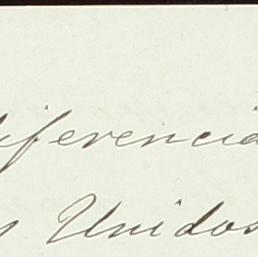 diferencia
s Unidos